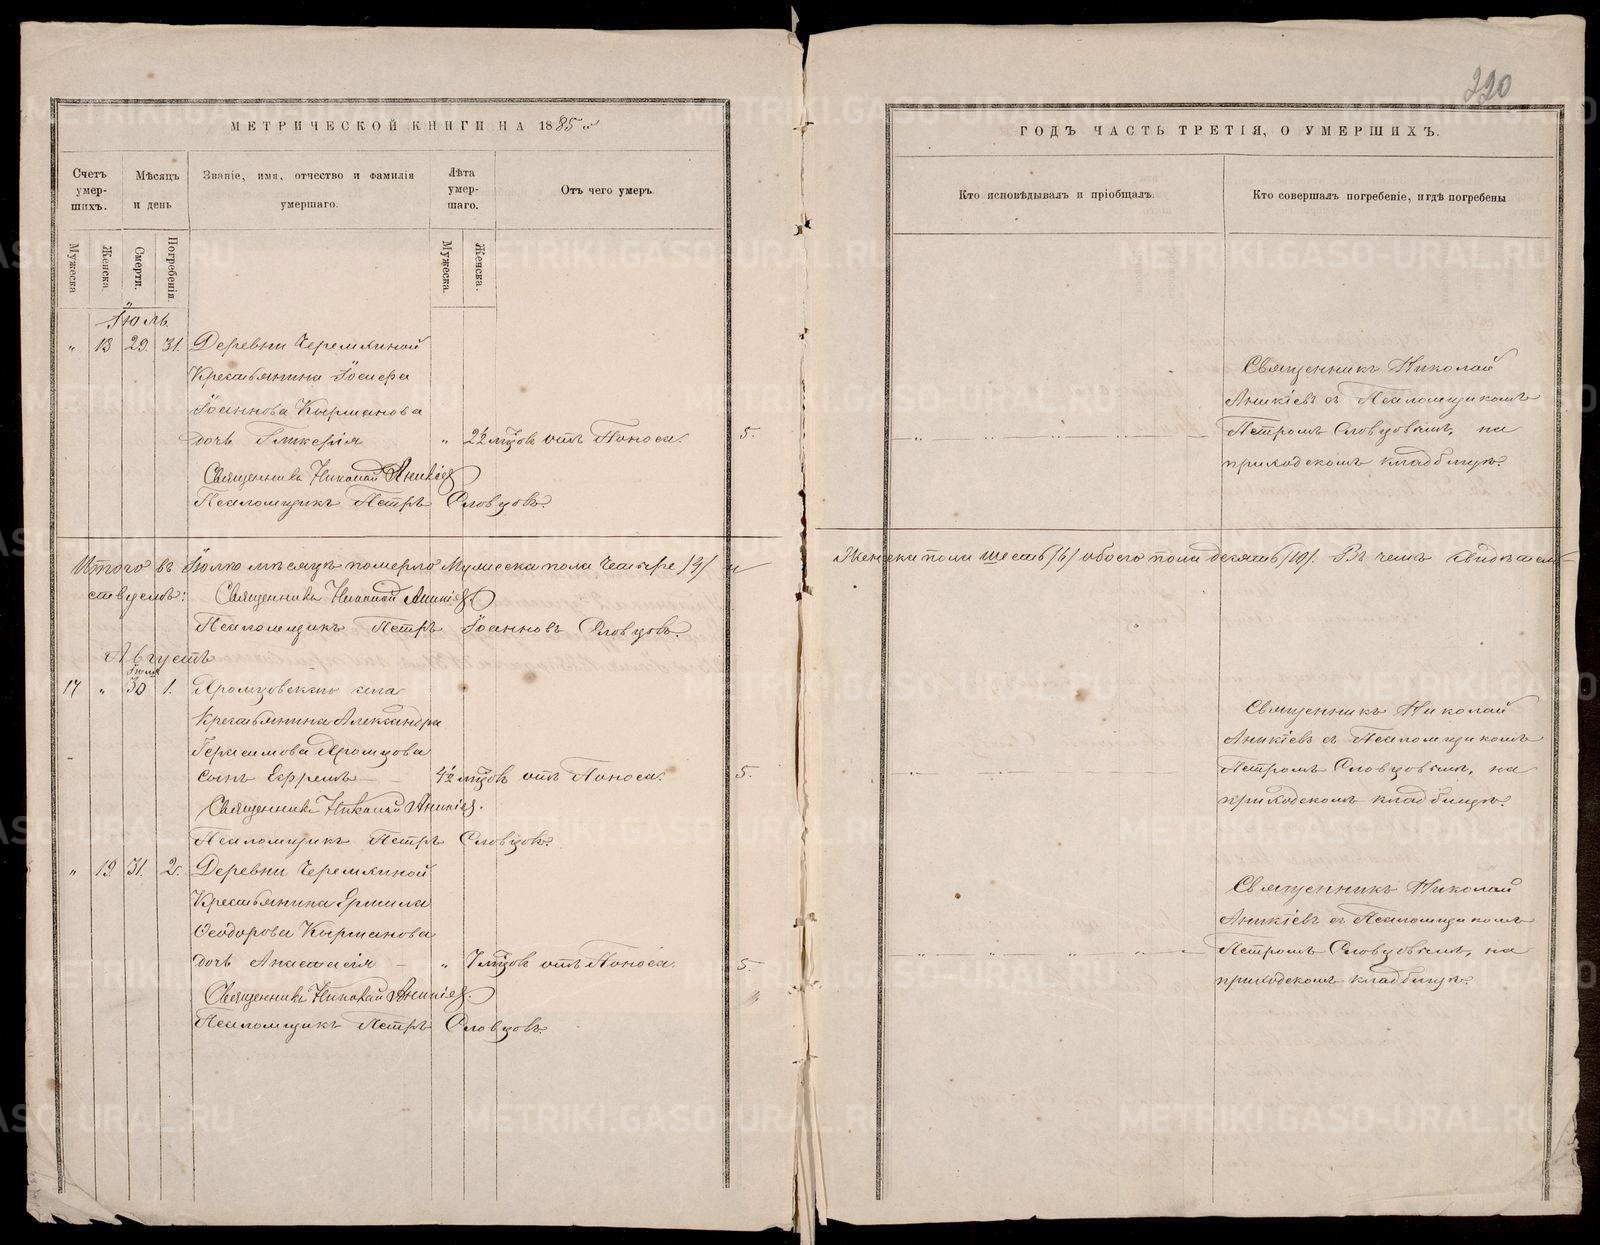 220
МЕТРИЧЕСКОЙ КНИГИ НА 1885 й
ГОДЪ ЧАСТЬ ТРЕТІЯ, О УМЕРШИХЪ.
Счетъ умер- шихъ.
Мѣсяцъ и день
Званіе, имя, отчество и фамилія умершаго.
Лѣта умер- шаго.
Отъ чего умеръ.
Кто исповѣдывалъ и пріобщалъ.
Кто совершалъ погребеніе, и гдѣ погребены
Мужеска
Женска.
Смерти.
Погребенія.
Мужеска.
Женска.
Іюль
" 13 29. 31. Деревни Черемхиной
Крестьянина Іосифа
Іоаннова Кырманова
дочь Гликерія " 2½ мцов отъ Поноса. 5.
Священникъ Николай Аникіев
Псаломщикъ Петръ Словцовъ.
Священникъ Николай
Аникіевъ съ Псаломщикомъ
Петромъ Словцовымъ, на
приходскомъ кладбищѣ.
Итого въ Іюлѣ мѣсяцѣ померло Мужеска пола Четыре /4/ и Женска пола шесть /6/ обоего пола десять /10/. Въ чемъ свидѣтель-
ствуемъ: Священникъ Николай Аникіев
Псаломщикъ Петръ Іоанновъ Словцовъ.
Августъ
Іюля
17 " 30 1. Яромцовскаго села
Крестьянина Александра
Герасимова Яромцова
сынъ Ефремъ 4½ мцов отъ Поноса. 5.
Священникъ Николай Аникіев.
Псаломщикъ Петръ Словцовъ.
Священникъ Николай
Аникіевъ съ Псаломщикомъ
Петромъ Словцовымъ, на
приходскомъ кладбищѣ.
" 19. 31. 2. Деревни Черемхиной
Крестьянина Ермила
Ѳеодорова Кырманова
дочь Анастасія " 7 мцов отъ Поноса. 5.
Священникъ Николай Аникіев.
Псаломщикъ Петръ Словцовъ.
Священникъ Николай
Аникіевъ съ Псаломщикомъ
Петромъ Словцовымъ, на
приходскомъ кладбищѣ.
METRIKI.GASO-URAL.RU